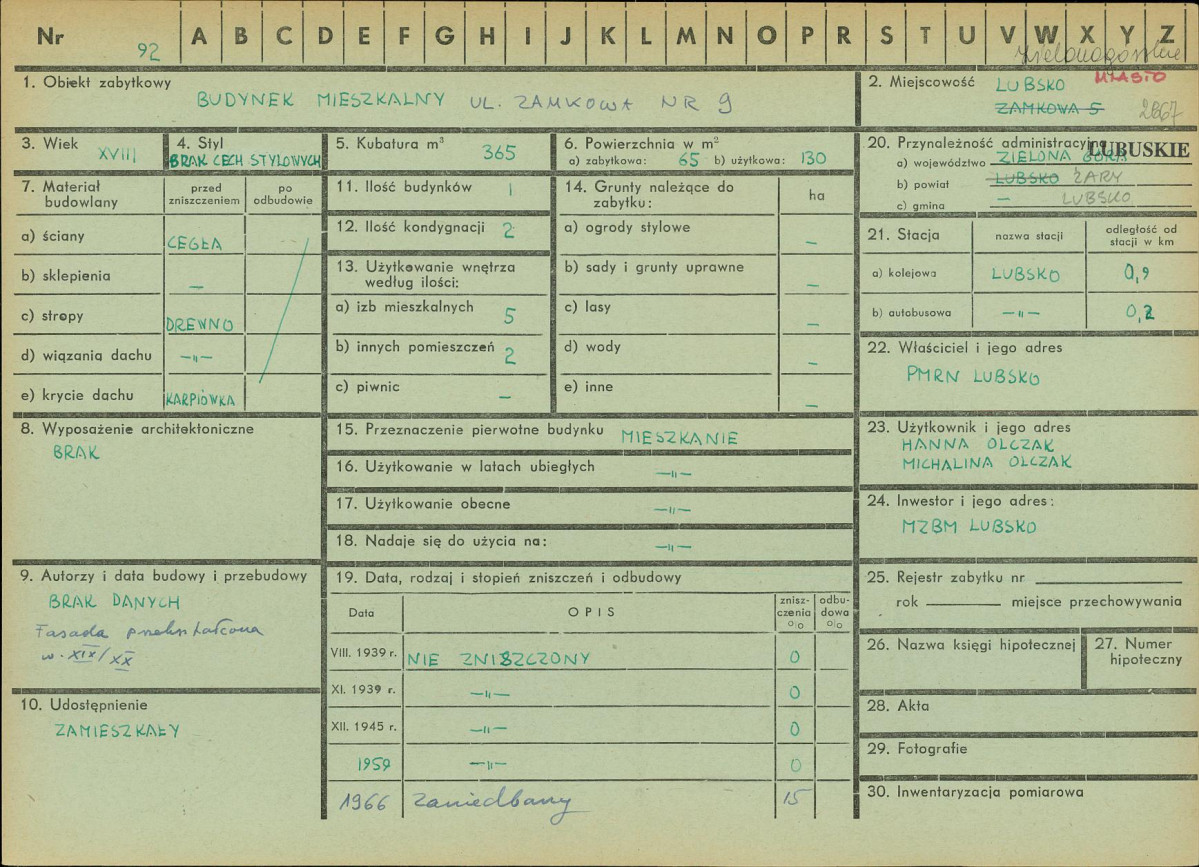 Nr 92 A B C D E F G H I J K L M N O P R S T U V W X Y Z
Zielonogórskie
1. Obiekt zabytkowy
BUDYNEK MIESZKALNY UL. ZAMKOWA NR 9
2. Miejscowość LUBSKO MIASTO
ZAMKOWA 5 2667
3. Wiek XVIII
4. Styl
BRAK CECH STYLOWYCH
5. Kubatura m³ 365
6. Powierzchnia w m²
a) zabytkowa: 65 b) użytkowa: 130
7. Materiał budowlany
przed zniszczeniem
po odbudowie
a) ściany CEGŁA
b) sklepienia —
c) stropy DREWNO
d) wiązania dachu —„—
e) krycie dachu KARPIÓWKA
8. Wyposażenie architektoniczne
BRAK
9. Autorzy i data budowy i przebudowy
BRAK DANYCH
Fasada przekształcona
w. XIX/XX
10. Udostępnienie
ZAMIESZKAŁY
11. Ilość budynków 1
12. Ilość kondygnacji 2
13. Użytkowanie wnętrza
według ilości:
a) izb mieszkalnych 5
b) innych pomieszczeń 2
c) piwnic —
14. Grunty należące do
zabytku:
ha
a) ogrody stylowe —
b) sady i grunty uprawne —
c) lasy —
d) wody —
e) inne —
15. Przeznaczenie pierwotne budynku MIESZKANIE
16. Użytkowanie w latach ubiegłych —„—
17. Użytkowanie obecne —„—
18. Nadaje się do użycia na: —„—
19. Data, rodzaj i stopień zniszczeń i odbudowy
Data
OPIS
znisz-
czenia
%
odbu-
dowa
%
VIII. 1939 r. NIE ZNISZCZONY 0
XI. 1939 r. —„— 0
XII. 1945 r. —„— 0
1959 —„— 0
1966 Zaniedbany 15
20. Przynależność administracyjna LUBUSKIE
a) województwo ZIELONA GÓRA
b) powiat LUBSKO ŻARY
c) gmina — LUBSKO
21. Stacja
nazwa stacji
odległość od
stacji w km
a) kolejowa LUBSKO 0,9
b) autobusowa —„— 0,2
22. Właściciel i jego adres
PMRN LUBSKO
23. Użytkownik i jego adres
HANNA OLCZAK
MICHALINA OLCZAK
24. Inwestor i jego adres:
MZBM LUBSKO
25. Rejestr zabytku nr
rok miejsce przechowywania
26. Nazwa księgi hipotecznej
27. Numer
hipoteczny
28. Akta
29. Fotografie
30. Inwentaryzacja pomiarowa